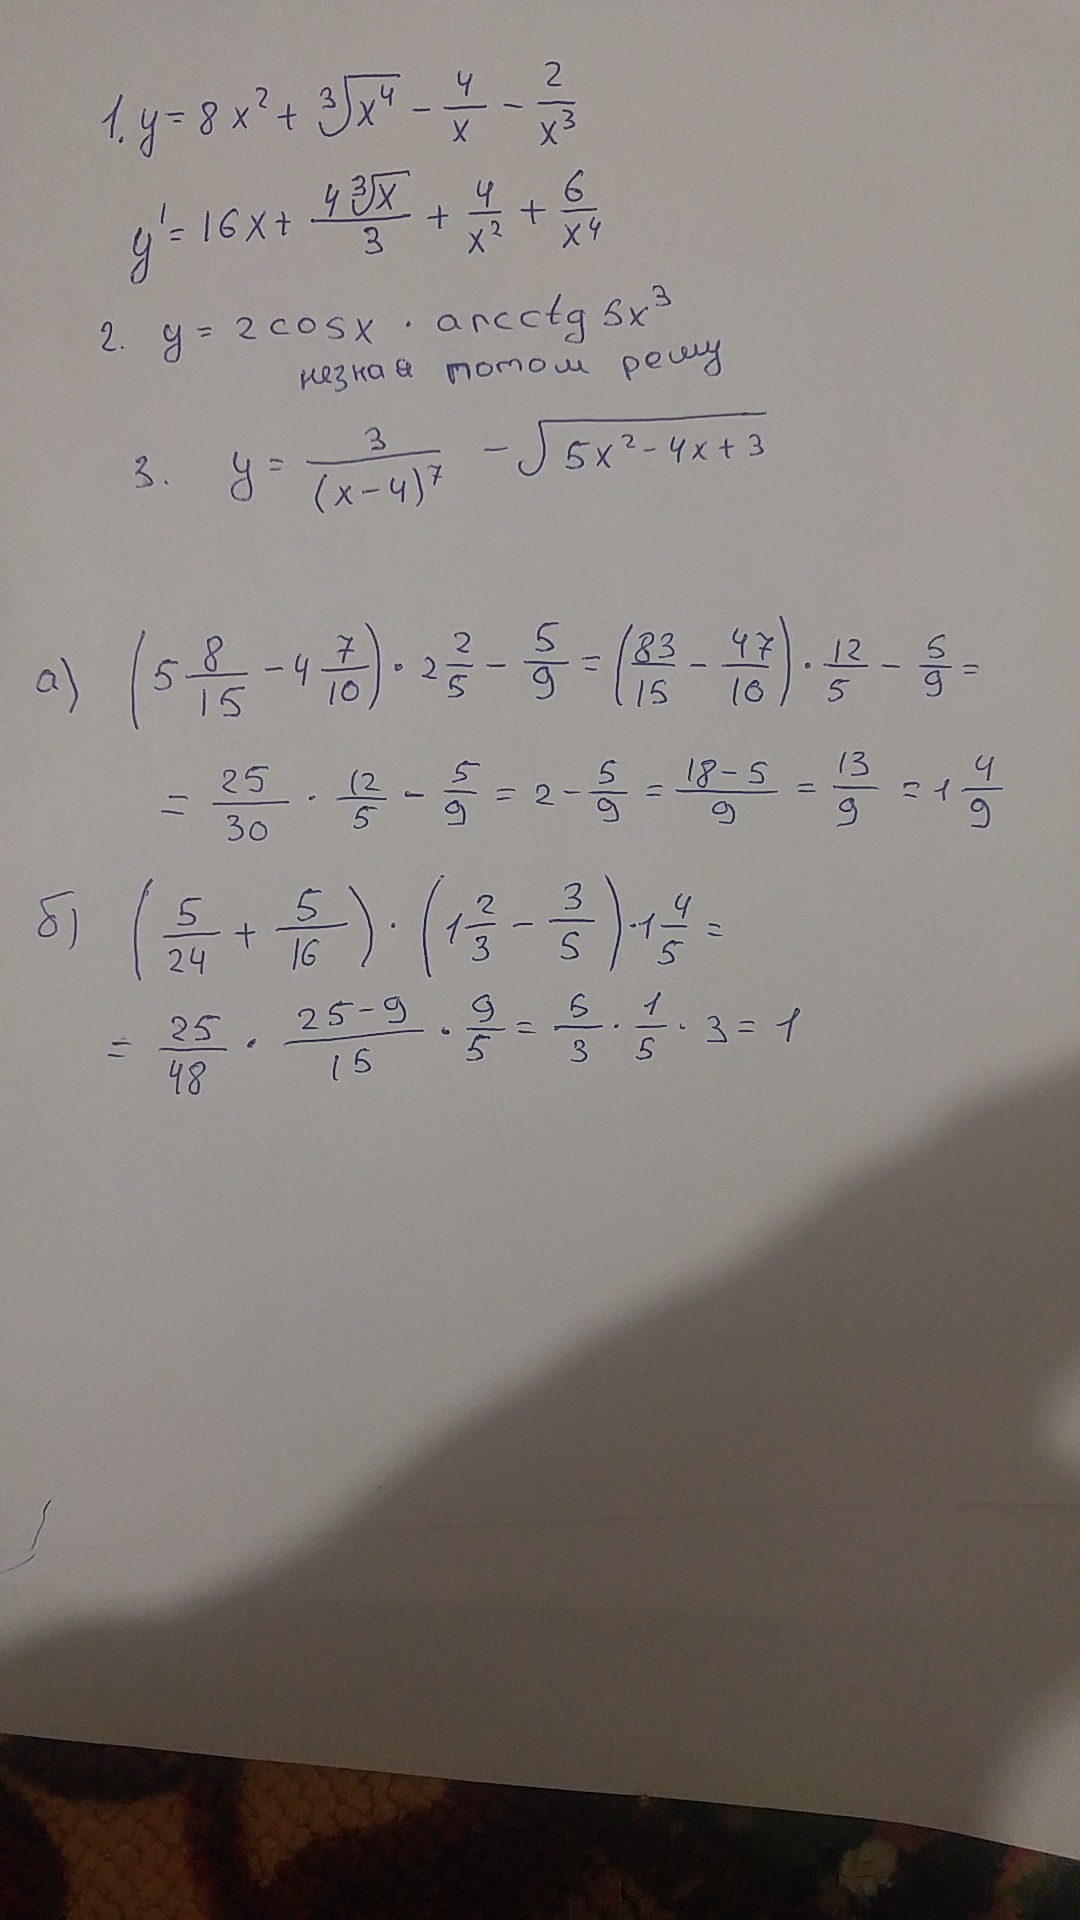 1. y = 8x² + ∛x⁴ - 4/x - 2/x³
y' = 16x + 4∛x/3 + 4/x² + 6/x⁴
2. y = 2cosx · arcctg 5x³
незная потом решу
3. y = 3/(x-4)⁷ - √(5x²-4x+3)
а) (5 8/15 - 4 7/10) · 2 2/5 - 5/9 = (83/15 - 47/10) · 12/5 - 5/9 =
= 25/30 · 12/5 - 5/9 = 2 - 5/9 = 18-5/9 = 13/9 = 1 4/9
б) (5/24 + 5/16) · (1 2/3 - 3/5) · 1 4/5 =
= 25/48 · 25-9/15 · 9/5 = 5/3 · 1/5 · 3 = 1